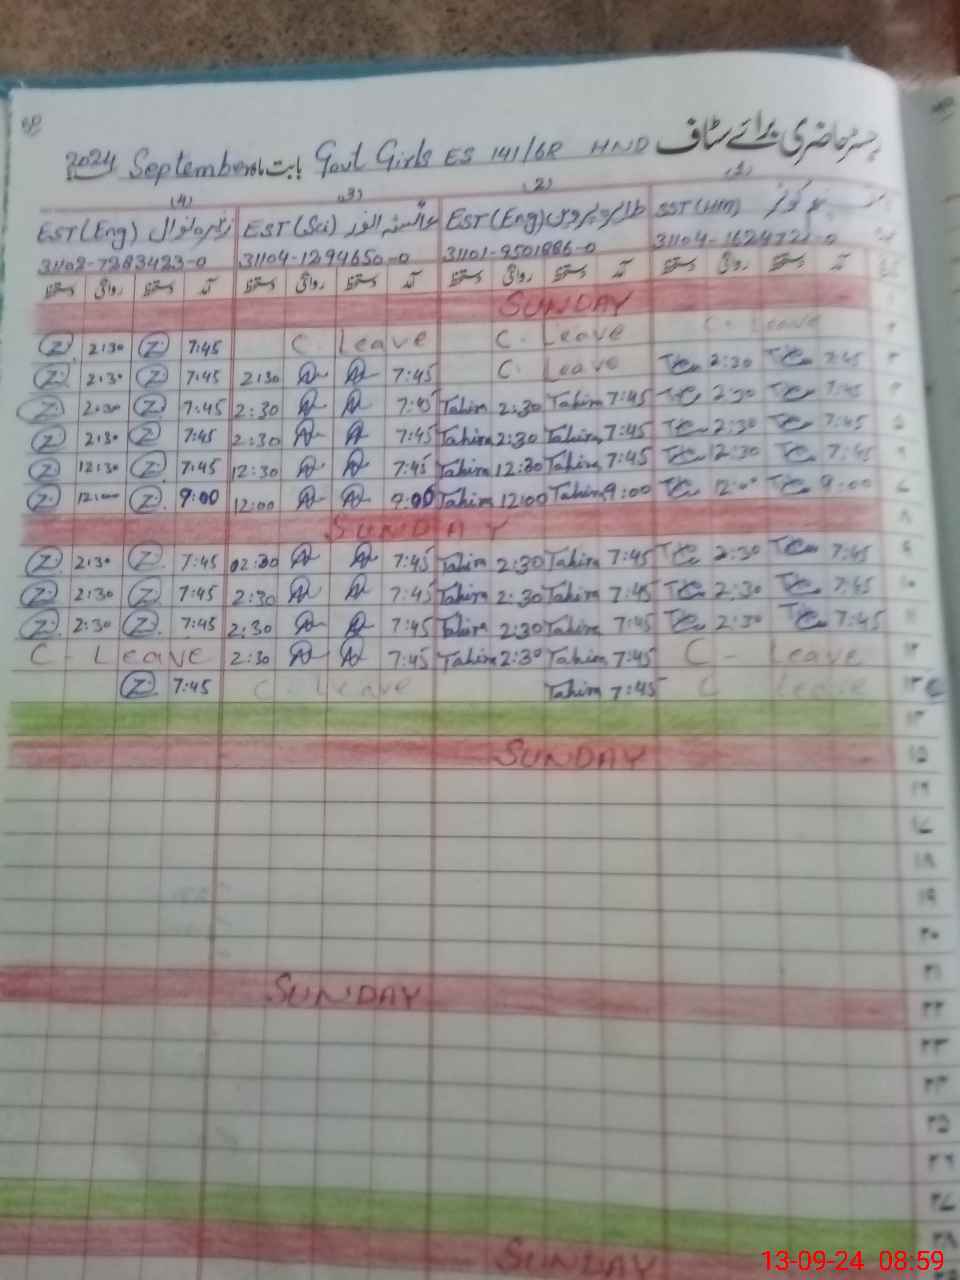 رجسٹر حاضری برائے سٹاف Govt Girls ES 141/6R HND بابت ماہ September 2024
(4) (3) (2) (1)
EST (Eng) EST (Sci) EST (Eng) SST (HM)
31102-7283423-0 31104-1294650-0 31101-9501886-0 31104-1624721-0
دستخط روانگی دستخط آمد دستخط روانگی دستخط آمد دستخط روانگی دستخط آمد دستخط روانگی دستخط آمد
SUNDAY ۱
Z 2:30 Z 7:45 C. Leave C. Leave C. Leave ۲
Z 2:30 Z 7:45 2:30 7:45 C. Leave 2:30 7:45 ۳
Z 2:30 Z 7:45 2:30 7:45 Tahira 2:30 Tahira 7:45 2:30 7:45 ۴
Z 2:30 Z 7:45 2:30 7:45 Tahira 2:30 Tahira 7:45 2:30 7:45 ۵
Z 12:30 Z 7:45 12:30 7:45 Tahira 12:30 Tahira 7:45 12:30 7:45 ۶
Z 12:00 Z 9:00 12:00 9:00 Tahira 12:00 Tahira 9:00 12:00 9:00 ۷
SUNDAY ۸
Z 2:30 Z 7:45 02:30 7:45 Tahira 2:30 Tahira 7:45 2:30 7:45 ۹
Z 2:30 Z 7:45 2:30 7:45 Tahira 2:30 Tahira 7:45 2:30 7:45 ۱۰
Z 2:30 Z 7:45 2:30 7:45 Tahira 2:30 Tahira 7:45 2:30 7:45 ۱۱
C - Leave 2:30 7:45 Tahira 2:30 Tahira 7:45 C - Leave ۱۲
Z 7:45 C - Leave Tahira 7:45 C Leave ۱۳
۱۴
SUNDAY ۱۵
۱۶
۱۷
۱۸
۱۹
۲۰
۲۱
SUNDAY ۲۲
۲۳
۲۴
۲۵
۲۶
۲۷
۲۸
SUNDAY ۲۹
13-09-24 08:59